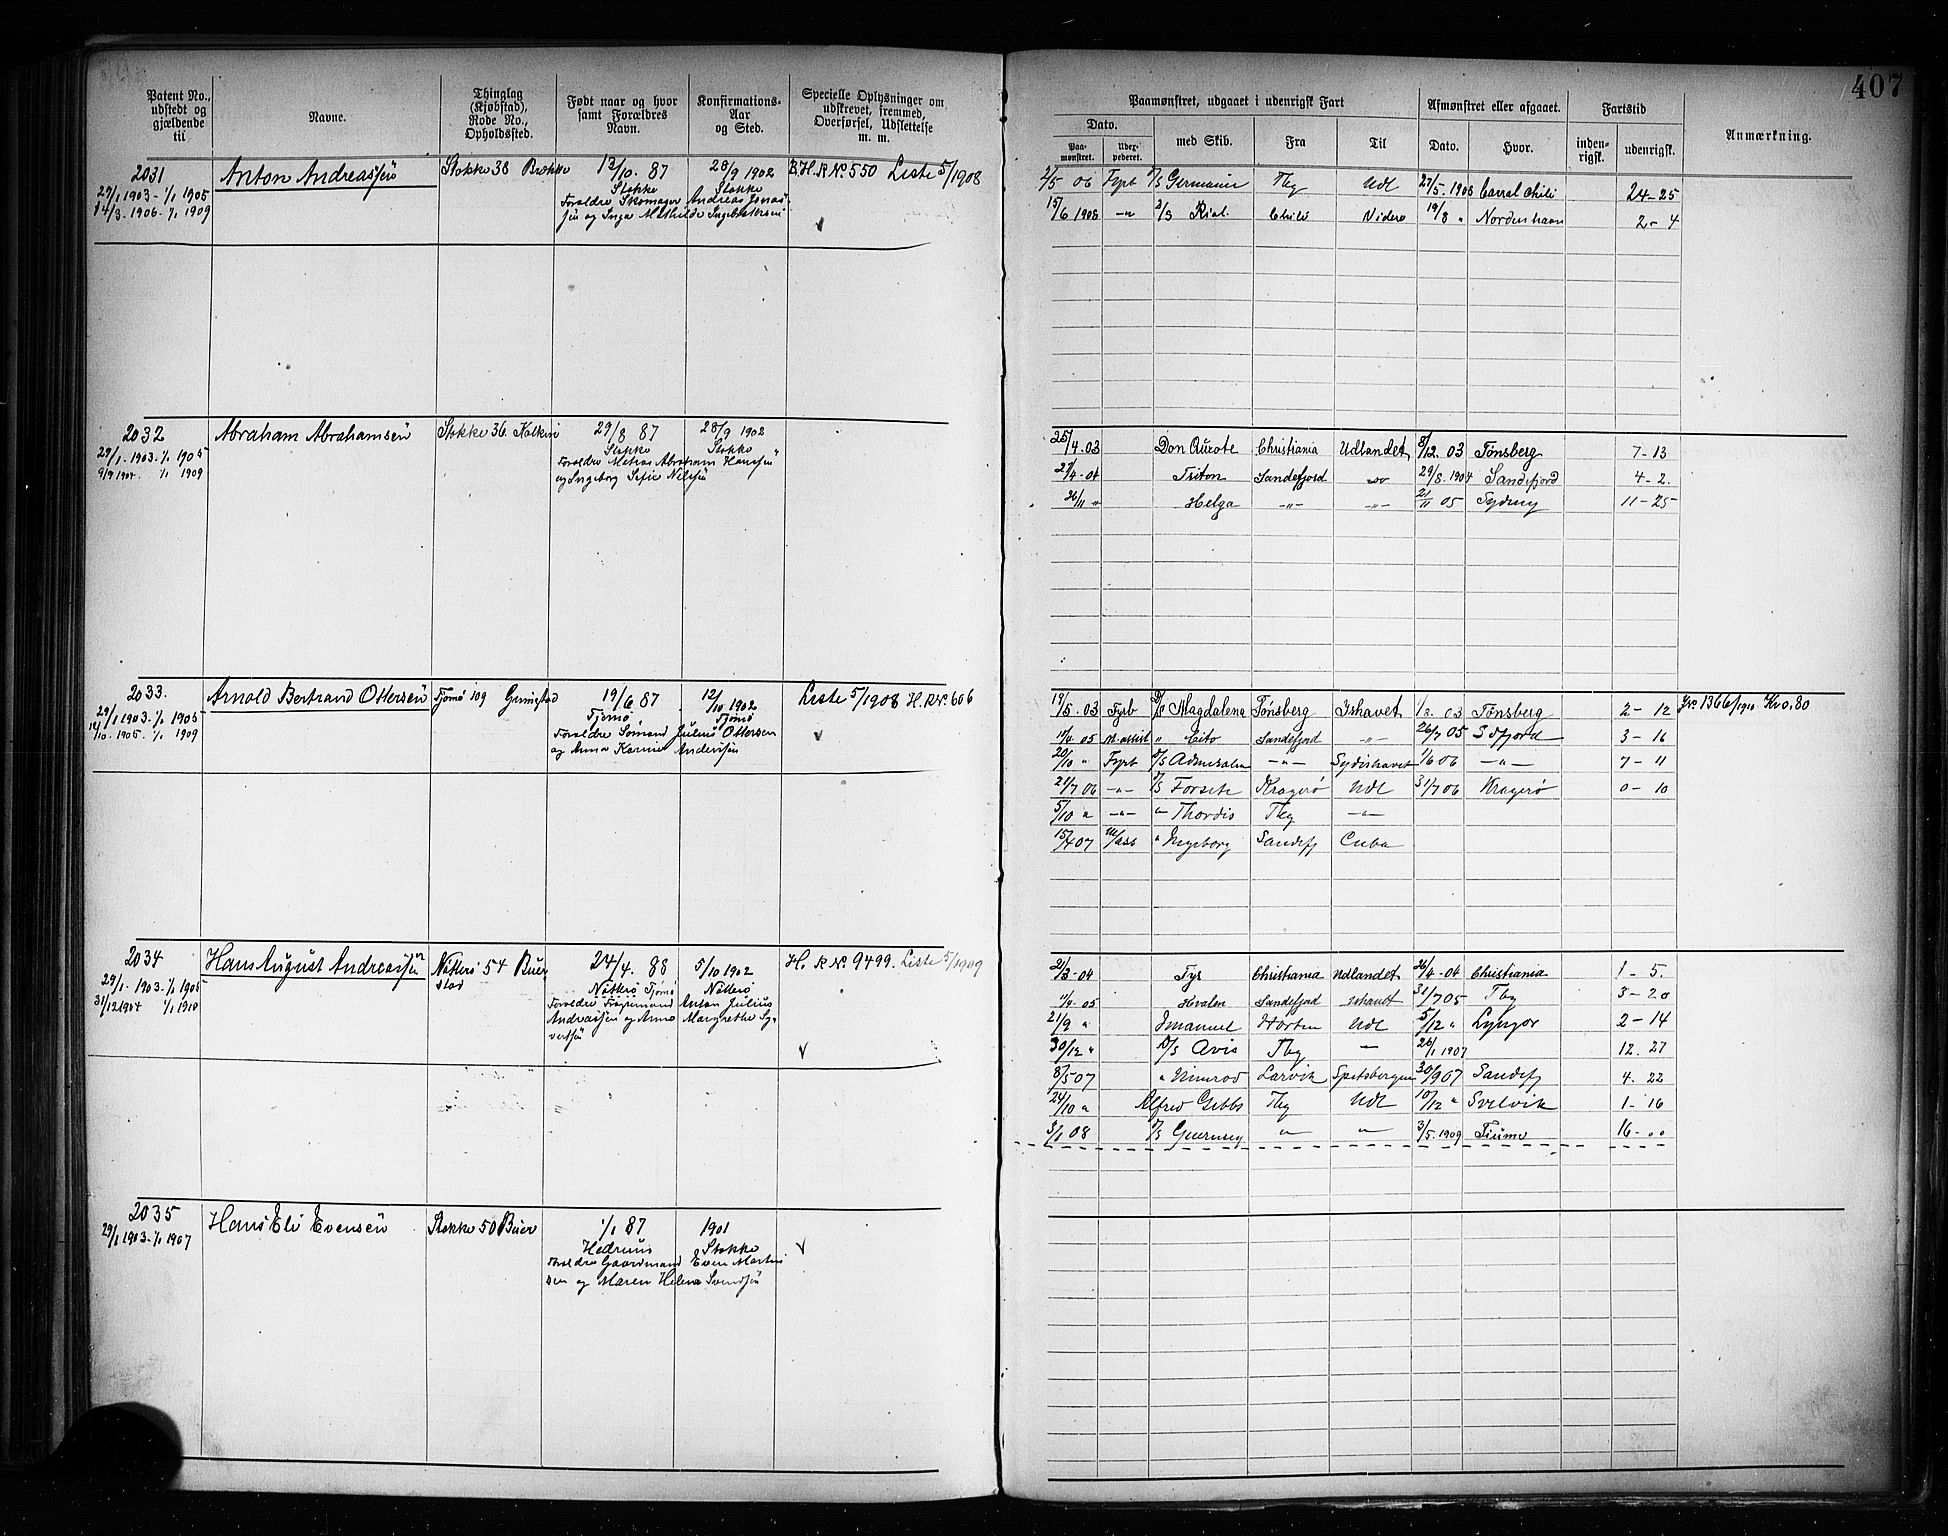 407
Patent No., udstedt og gjældende til
Navne.
Thinglag (Kjøbstad), Rode No., Opholdssted.
Født naar og hvor samt Forældres Navn.
Konfirmations-Aar og Sted.
Specielle Oplysninger om udskrevet, fremmed, Overførsel, Udslettelse m. m.
Paamønstret, udgaaet i udenrigsk Fart
Afmønstret eller afgaaet.
Fartstid
Anmærkning.
Dato.
Paa-mønstret.
Udex-pederet.
med Skib.
Fra
Til
Dato.
Hvor.
inden-rigsk.
udenrigsk.
2031
29/1 1903 - 1/1 1905
14/3. 1906. 1/1 1909
Anton Andreassen
Stokke 38 Brekke
13/10. 87
Stokke
28/9 1902
Stokke
Forældre Skomager Andreas Jonas-
sen og Inga Mathilde Ingebretsen
B.H.R.No. 550 Liste 5/1908
2/5 06 Fyrb Germanie Tbg Udl 27/5. 1908 Corral Chili 24-25
15/6 1908 -"- Rial. Chili 19/8 " Nordenhavn 2-4
2032
29/1. 1903. 1/1 1905
9/9 1904. 1/1 1909
Abraham Abrahamsen
Stokke 36.
29/8 87
Stokke
28/9 1902
Stokke
Forældre Matros Abraham Hansen
og Ingeborg Sofie Nilsen
25/4.03 Don Quixote Christiania Udlandet 8/12 03 Tønsberg 7-13
27/4-04 Triton Sandefjord do 29/8. 1904 Sandefjord 4-2.
26/11 " Helga -"- -"- 21/11 05 Sydney 11-25
2033.
29/1 1903. 1/1 1905
10. 1905. 1/1 1909
Arnold Bertrand Ottersen
Tjømø 109 Grimestad
19/6 87
Tjømø
12/10 1902
Tjømø
Forældre Sømand Julius Ottersen
og Anna Karine Andersen
Liste 5/1908 H.R.No. 606
19/5.03 Fyrb Magdalena Tønsberg Ishavet 1/2. 03 Tønsberg 2-12
Jr. 1366/1910 Kv 0,80
11/4 05 M.assist " Cito Sandefjord -"- 26/7 05 Sdfjord 3-16
20/10 " Fyrb Admiralen -"- Sydishavet 1/6 06 -"- 7-11
21/7 06 -"- Forsete Kragerø Udl 31/7 06 Kragerø 0-10
5/10 " -"- " Thordis Tbg -"-
15/4 07 M/ass " Ingeborg Sandefj Cuba
2034
29/1. 1903. 1/1 1905
31/12 1904 1/1 1910
Hans August Andreassen
Nøtterø 54 Buer
stad
24/4. 88
Nøtterø Tjømø
5/10 1902
Nøtterø
Andreassen og Anna Margrethe Sy-
vertsen
H. R No. 9499. Liste 5/1909
21/3-04 Tyr Christiania Udlandet 26/4-04 Christiania 1-5.
11/4-05 Hvalen Sandefjord Ishavet 31/7 05 Tbg 3-20
21/9 " Imanuel Horten Udl 5/12 " Lyngør 2-14
30/12 " D/S Avis Tbg - 26/1 1907 12.27
8/5 07 " Nimrod Larvik Spitsbergen 30/9 07 Sandefj 4.22
24/10 " Alfred Gibbs Tbg Udl 10/12 " Svelvik 1-16
3/1 08 Guernsey -"- -"- 3/5. 1909 Fiume 16-..
2035
29/1 1903. 1/1 1907
Hans Eli Evensen
Stokke 50 Buer
1/1 87
Hedrum
1901
Stokke
Forældre Gaardmand Even Martin
sen og Maren Helene Svendsen